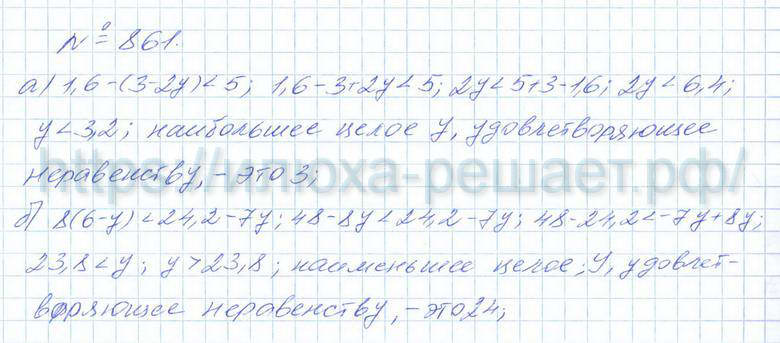 № 861.
а) 1,6-(3-2y)<5; 1,6-3+2y<5; 2y<5+3-1,6; 2y<6,4;
y<3,2; наибольшее целое y, удовлетворяющее
неравенству, - это 3;
https://илюха-решает.рф/
б) 8(6-y)<24,2-7y; 48-8y<24,2-7y; 48-24,2<-7y+8y;
23,8<y; y>23,8; наименьшее целое; y, удовлет-
воряющее неравенству, - это 24;